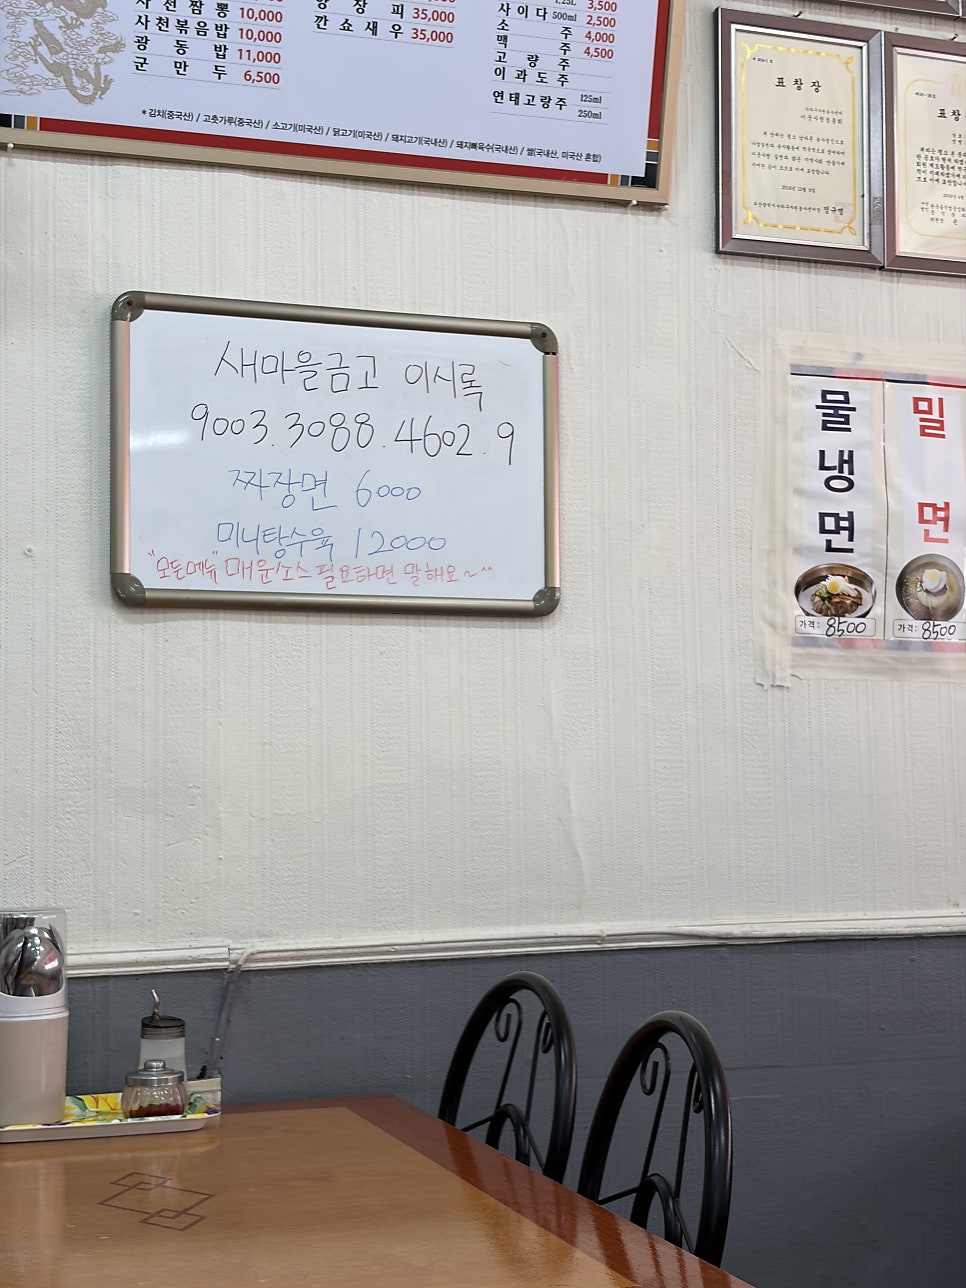 사천짬뽕 10,000
사천볶음밥 10,000
광동밥 11,000
군만두 6,500
장피 35,000
깐쇼새우 35,000
1.25L 3,500
사이다 500ml 2,500
소주 4,000
맥주 4,500
고량주
이과도주
연태고량주 125ml
250ml
*김치(중국산) / 고춧가루(중국산) / 소고기(미국산) / 닭고기(미국산) / 돼지고기(국내산) / 돼지뼈육수(국내산) / 쌀(국내산, 미국산 혼합)
표창장
표창
새마을금고 이시록
9003.3088.4602.9
짜장면 6000
미니탕수육 12000
"모든메뉴" 매운소스 필요하면 말해요~^^
물냉면
가격: 8500
밀면
가격: 8500